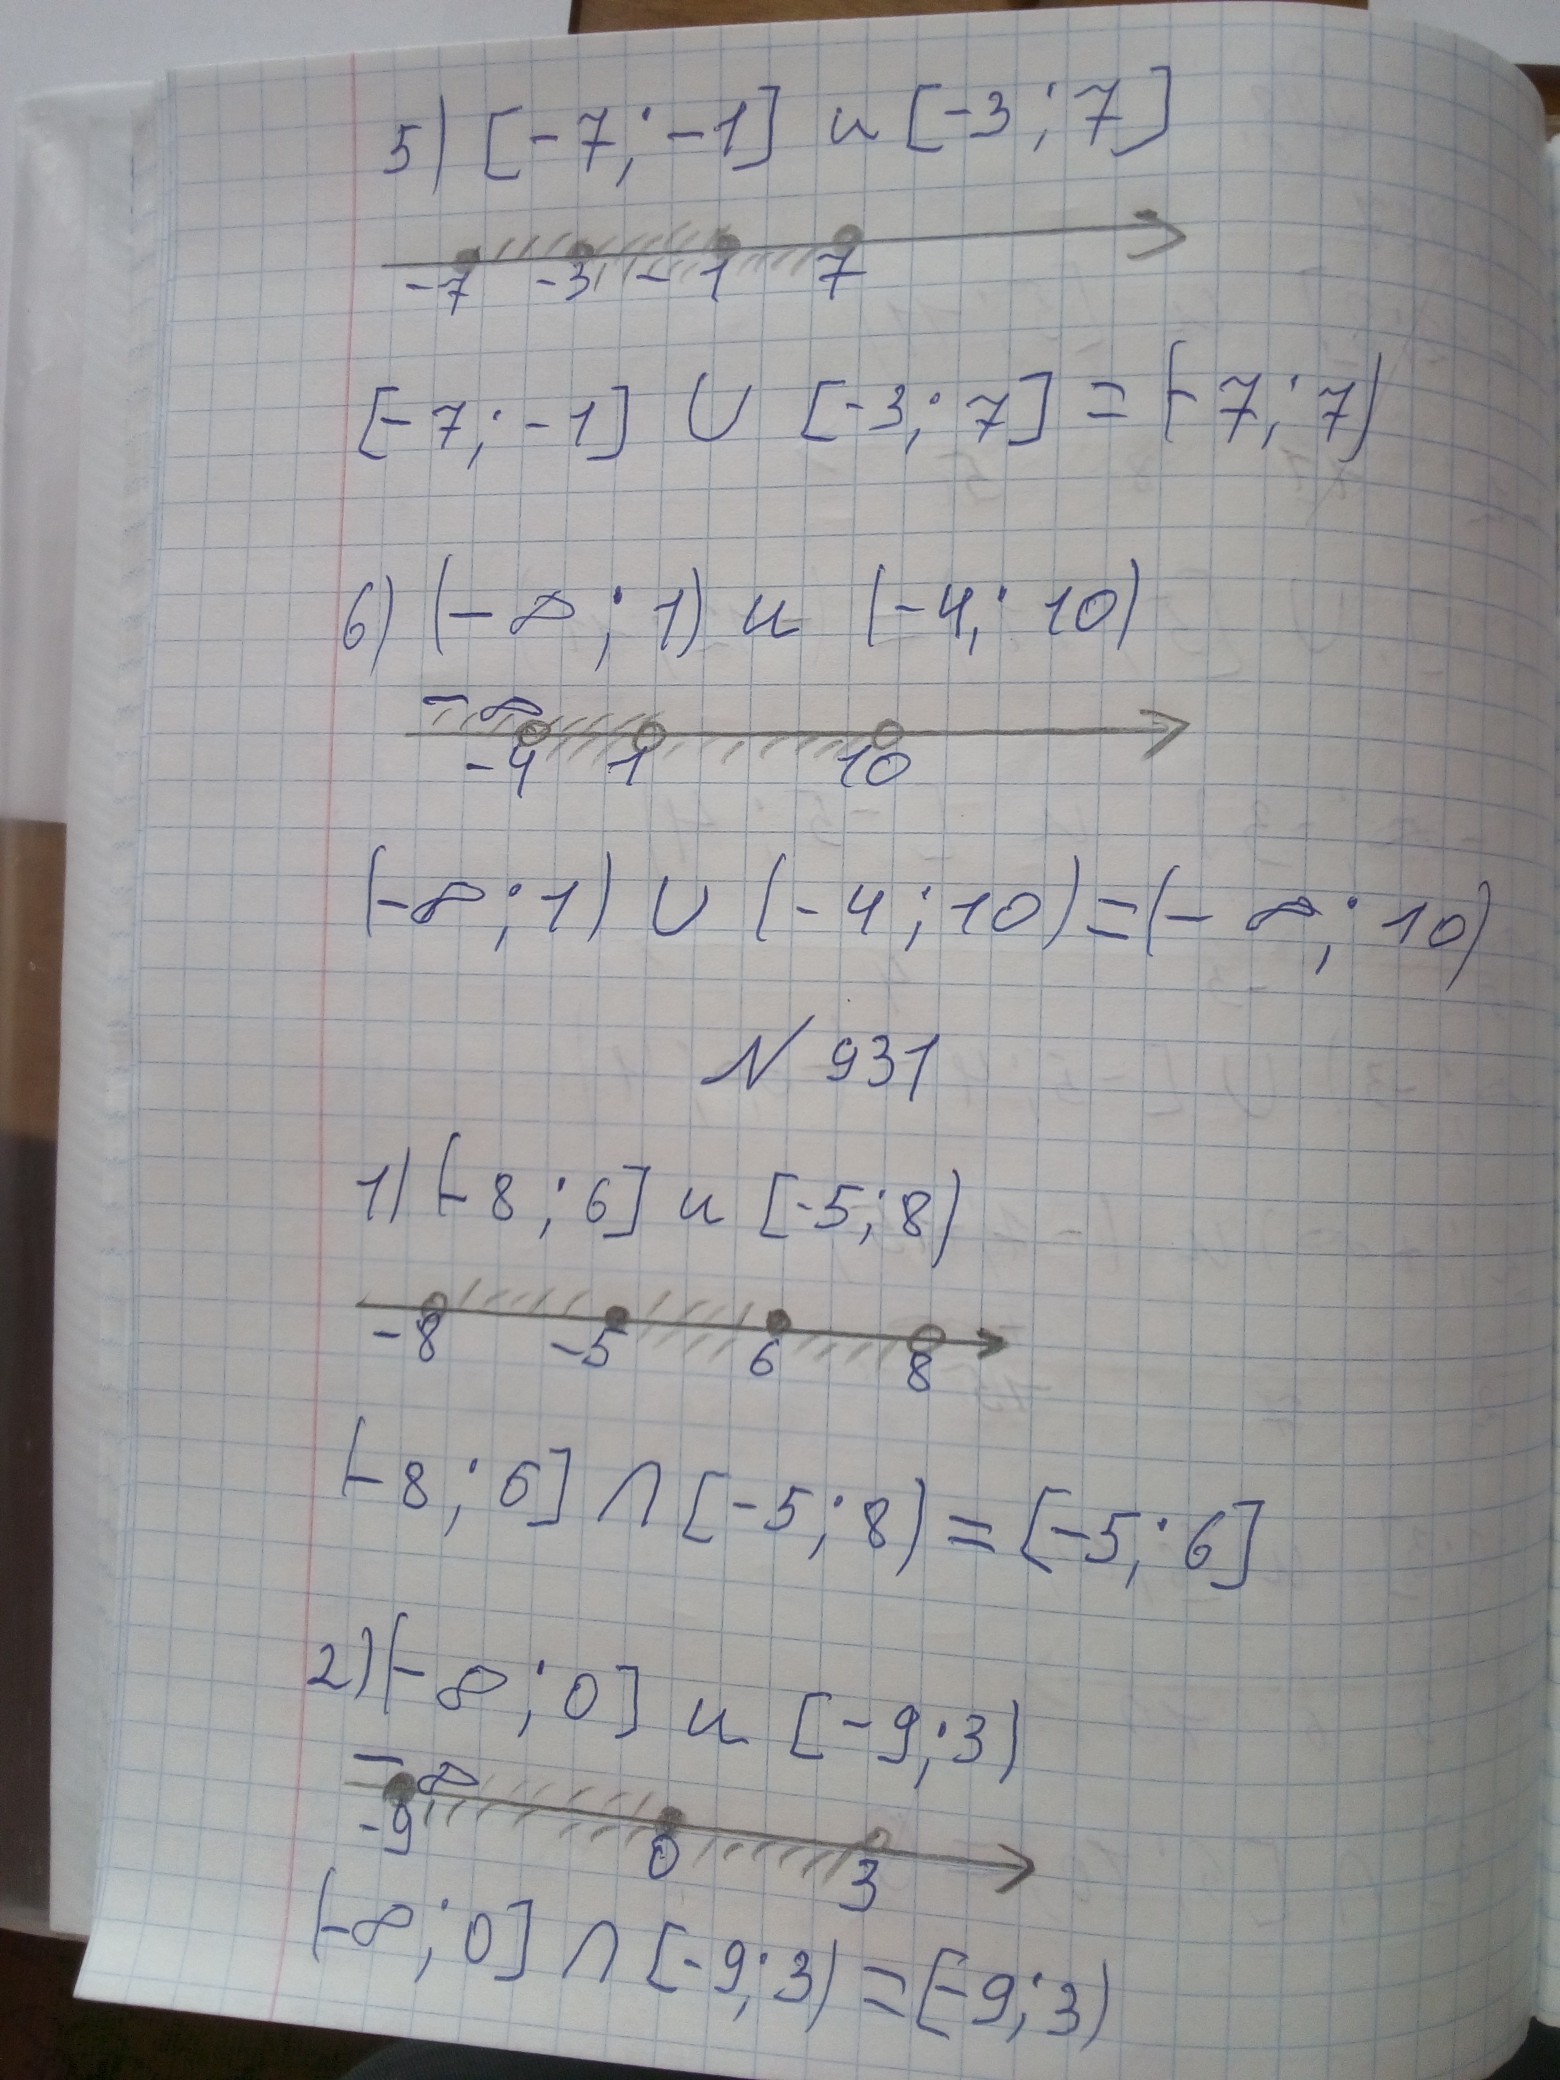 5) [-7; -1] и [-3; 7]
-7 -3 -1 7
[-7; -1] ∪ [-3; 7] = (-7; 7)
6) (-∞; 1) и (-4; 10)
-∞
-4 1 10
(-∞; 1) ∪ (-4; 10) = (-∞; 10)
N 931
1) (-8; 6] и [-5; 8)
-8 -5 6 8
(-8; 6] ∩ [-5; 8) = [-5; 6]
2) (-∞; 0] и [-9; 3)
-∞
-9 0 3
(-∞; 0] ∩ [-9; 3) = [-9; 3)